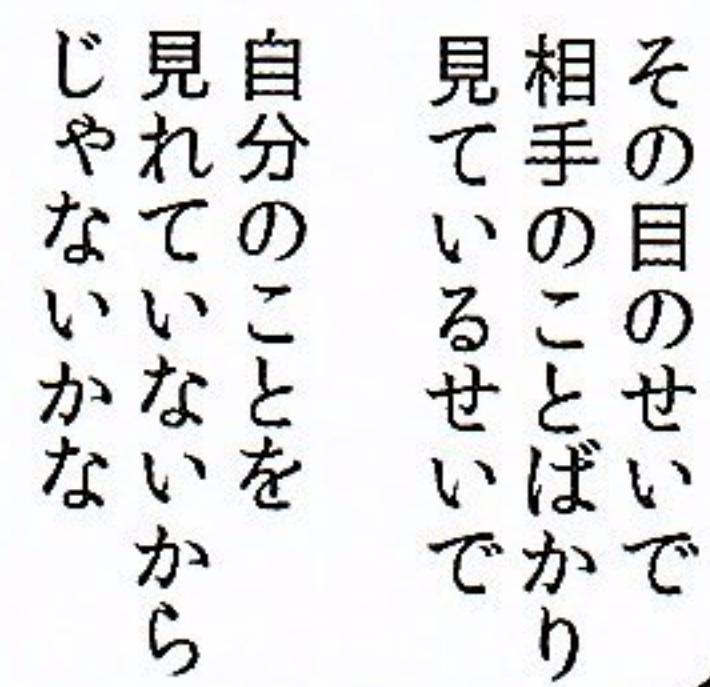 その目のせいで
相手のことばかり
見ているせいで
自分のことを
見れていないから
じゃないかな